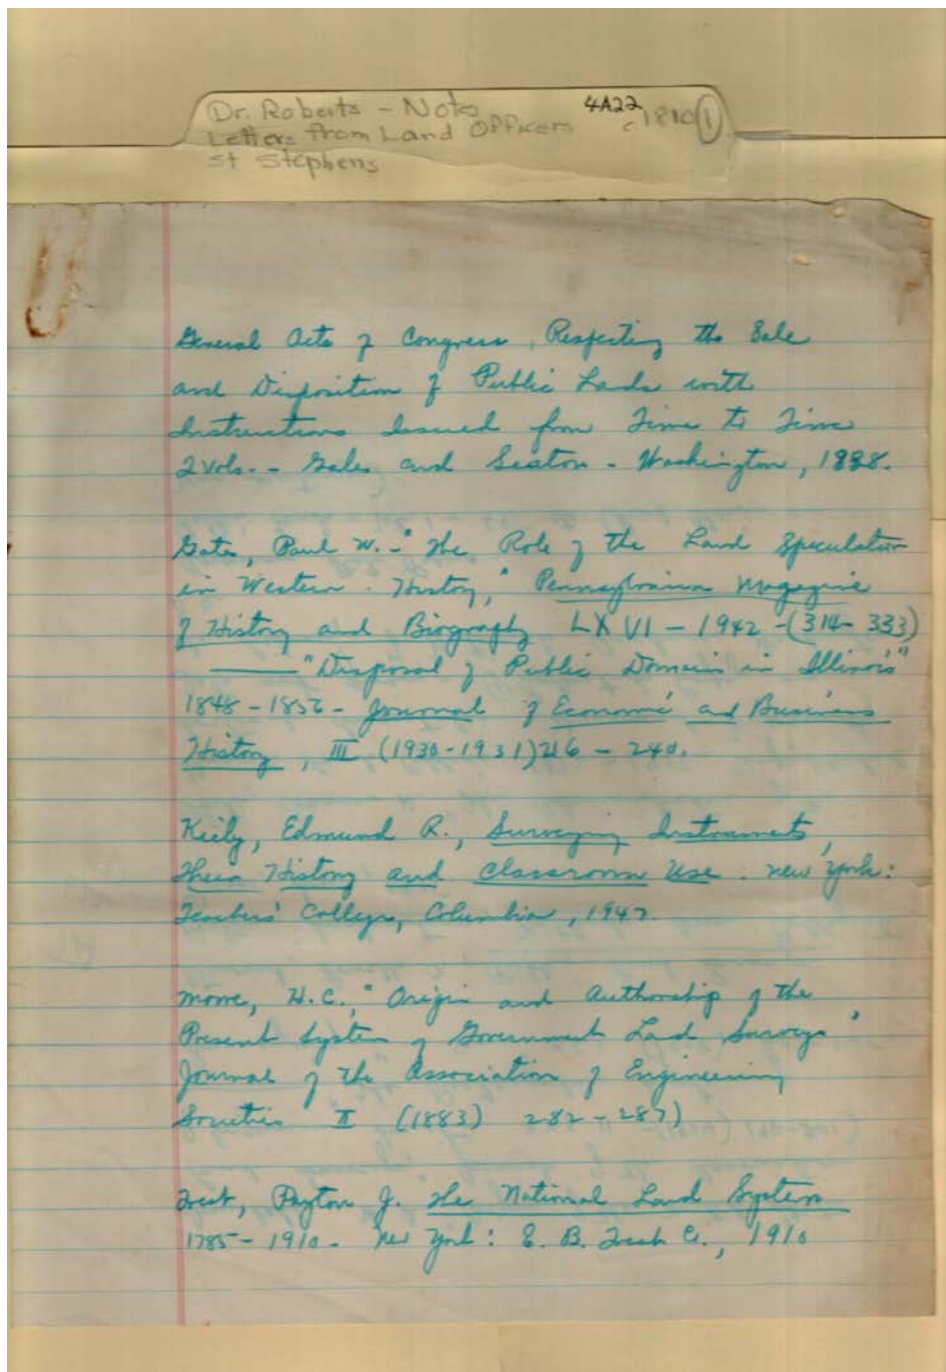 Dr. Roberts - Notes 4A22
Letters from Land Officers c 1810 1
St Stephens
General Acts of Congress, Respecting the Sale
and Disposition of Public Lands with
Instructions Issued from Time to Time
2 vols. - Gales and Seaton - Washington, 1838.
Gates, Paul W. - "The Role of the Land Speculation
in Western History," Pennsylvania Magazine
of History and Biography LXVI - 1942 - (314-333)
"Disposal of Public Domain in Illinois"
1848-1856 - Journal of Economic and Business
History, III (1930-1931) 216 - 240.
Kiely, Edmund R., Surveying Instruments,
Their History and Classroom Use. New York:
Teachers' College, Columbia, 1947.
Moore, H.C., "Origin and Authorship of the
Present System of Government Land Surveys"
Journal of the Association of Engineering
Societies II (1883) 282-287)
Treat, Payton J. The National Land System
1785-1910. New York: E. B. Treat Co., 1910